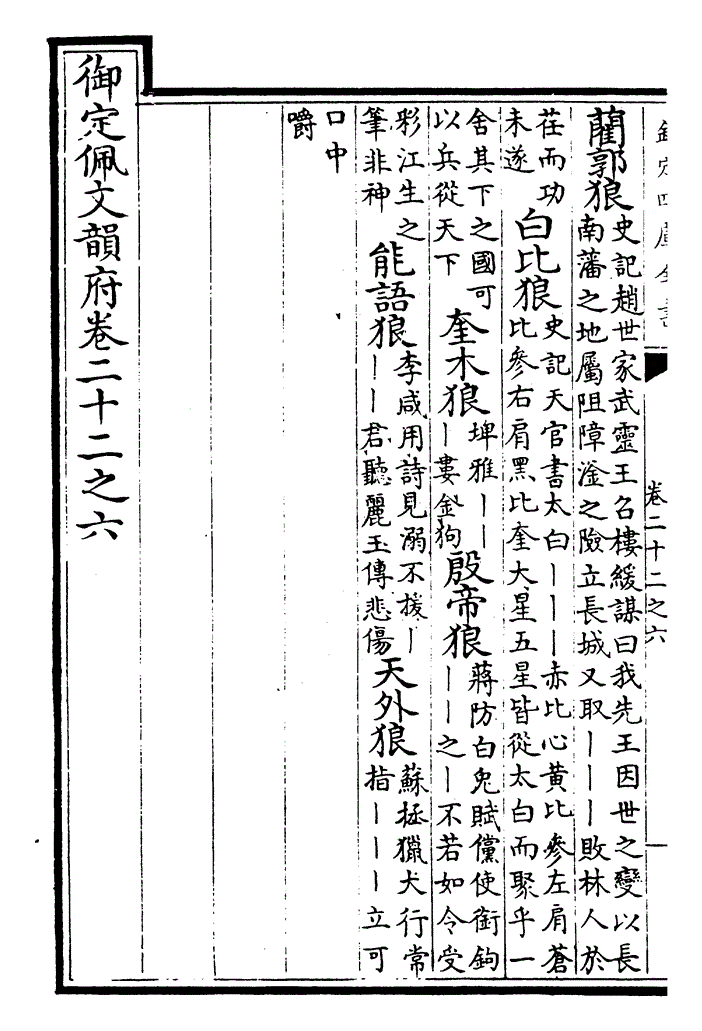 欽定四庫全書
卷二十二之六
藺郭狼
史記趙世家武靈王召樓緩謀曰我先王因世之變以長
南藩之地屬阻障滏之險立長城又取丨丨丨敗林人於
荏而功
未遂
白比狼
史記天官書太白丨丨丨赤比心黄比參左肩蒼
比參右肩黑比奎大星五星皆從太白而聚乎一
舍其下之國可
以兵從天下
奎木狼
埤雅丨丨
丨婁金狗
殷帝狼
蔣防白兔賦儻使銜鉤
丨丨之丨不若如令受
彩江生之
筆非神
能語狼
李咸用詩見溺不援丨
丨丨君聽麗玉傳悲傷
天外狼
蘇拯獵犬行常
指丨丨丨立可
口中
嚼
御定佩文韻府卷二十二之六